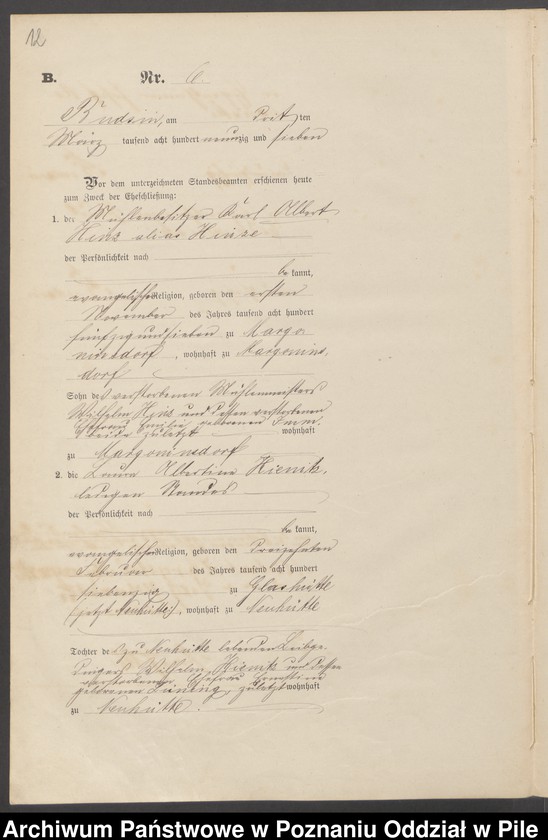 12
B. Nr. 6.
Budsin, am Drit ten
März tausend acht hundert neunzig und sieben
Vor dem unterzeichneten Standesbeamten erschienen heute
zum Zweck der Eheschließung:
1. der Mühlenbesitzer Karl Albert
Hinz alias Heinze
der Persönlichkeit nach
be kannt,
evangelischer Religion, geboren den ersten
November des Jahres tausend acht hundert
fünfzig und sieben zu Margo
ninsdorf, wohnhaft zu Margonins
dorf
Sohn des verstorbenen Mühlenmeisters
Wilhelm Hinz und dessen verstorbenen
Ehefrau Emilie geborenen
beide zuletzt wohnhaft
zu Margoninsdorf
2. die Laura Albertine Kienitz,
ledigen Standes
der Persönlichkeit nach
be kannt,
evangelischer Religion, geboren den dreizehnten
Februar des Jahres tausend acht hundert
siebenzig zu Glashütte
(jetzt Neuhütte), wohnhaft zu Neuhütte
Tochter des zu Neuhütte lebenden Leibge
dingers Wilhelm Kienitz und dessen
verstorbenen Ehefrau Ernestine
geborenen Lüning, zuletzt wohnhaft
zu Neuhütte.
Archiwum Państwowe w Poznaniu Oddział w Pile